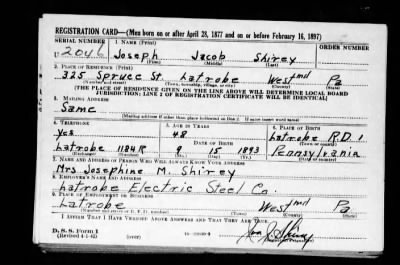 REGISTRATION CARD—(Men born on or after April 28, 1877 and on or before February 16, 1897)
SERIAL NUMBER 1. NAME (Print) ORDER NUMBER
U 2046 Joseph Jacob Shirey
(First) (Middle) (Last)
2. PLACE OF RESIDENCE (Print)
325 Spruce St. Latrobe Westmd Pa
(Number and street) (Town, township, village, or city) (County) (State)
[THE PLACE OF RESIDENCE GIVEN ON THE LINE ABOVE WILL DETERMINE LOCAL BOARD
JURISDICTION; LINE 2 OF REGISTRATION CERTIFICATE WILL BE IDENTICAL]
3. MAILING ADDRESS
Same
[Mailing address if other than place indicated on line 2. If same insert word same]
4. TELEPHONE 5. AGE IN YEARS 6. PLACE OF BIRTH
Yes 48 Latrobe R.D. 1
DATE OF BIRTH (Town or county)
Latrobe 1184R 9 15 1893 Pennsylvania
(Exchange) (Number) (Mo.) (Day) (Yr.) (State or country)
7. NAME AND ADDRESS OF PERSON WHO WILL ALWAYS KNOW YOUR ADDRESS
Mrs Josephine M. Shirey
8. EMPLOYER'S NAME AND ADDRESS
Latrobe Electric Steel Co.
9. PLACE OF EMPLOYMENT OR BUSINESS
Latrobe Westmd Pa
(Number and street or R. F. D. number) (Town) (County) (State)
I AFFIRM THAT I HAVE VERIFIED ABOVE ANSWERS AND THAT THEY ARE TRUE.
D. S. S. Form 1
(Revised 4-1-42) (over) Shirey